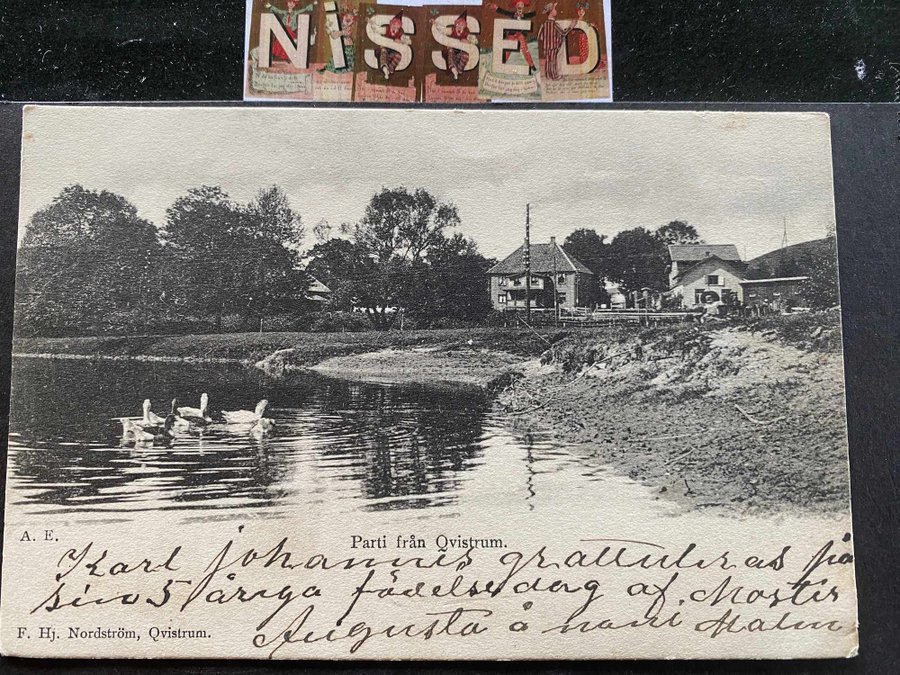 NiSSED
A. E.
Parti från Qvistrum.
Karl johannes grattuleras på
5 åriga födelsedag af Moster
F. Hj. Nordström, Qvistrum.
Augusta å Malm